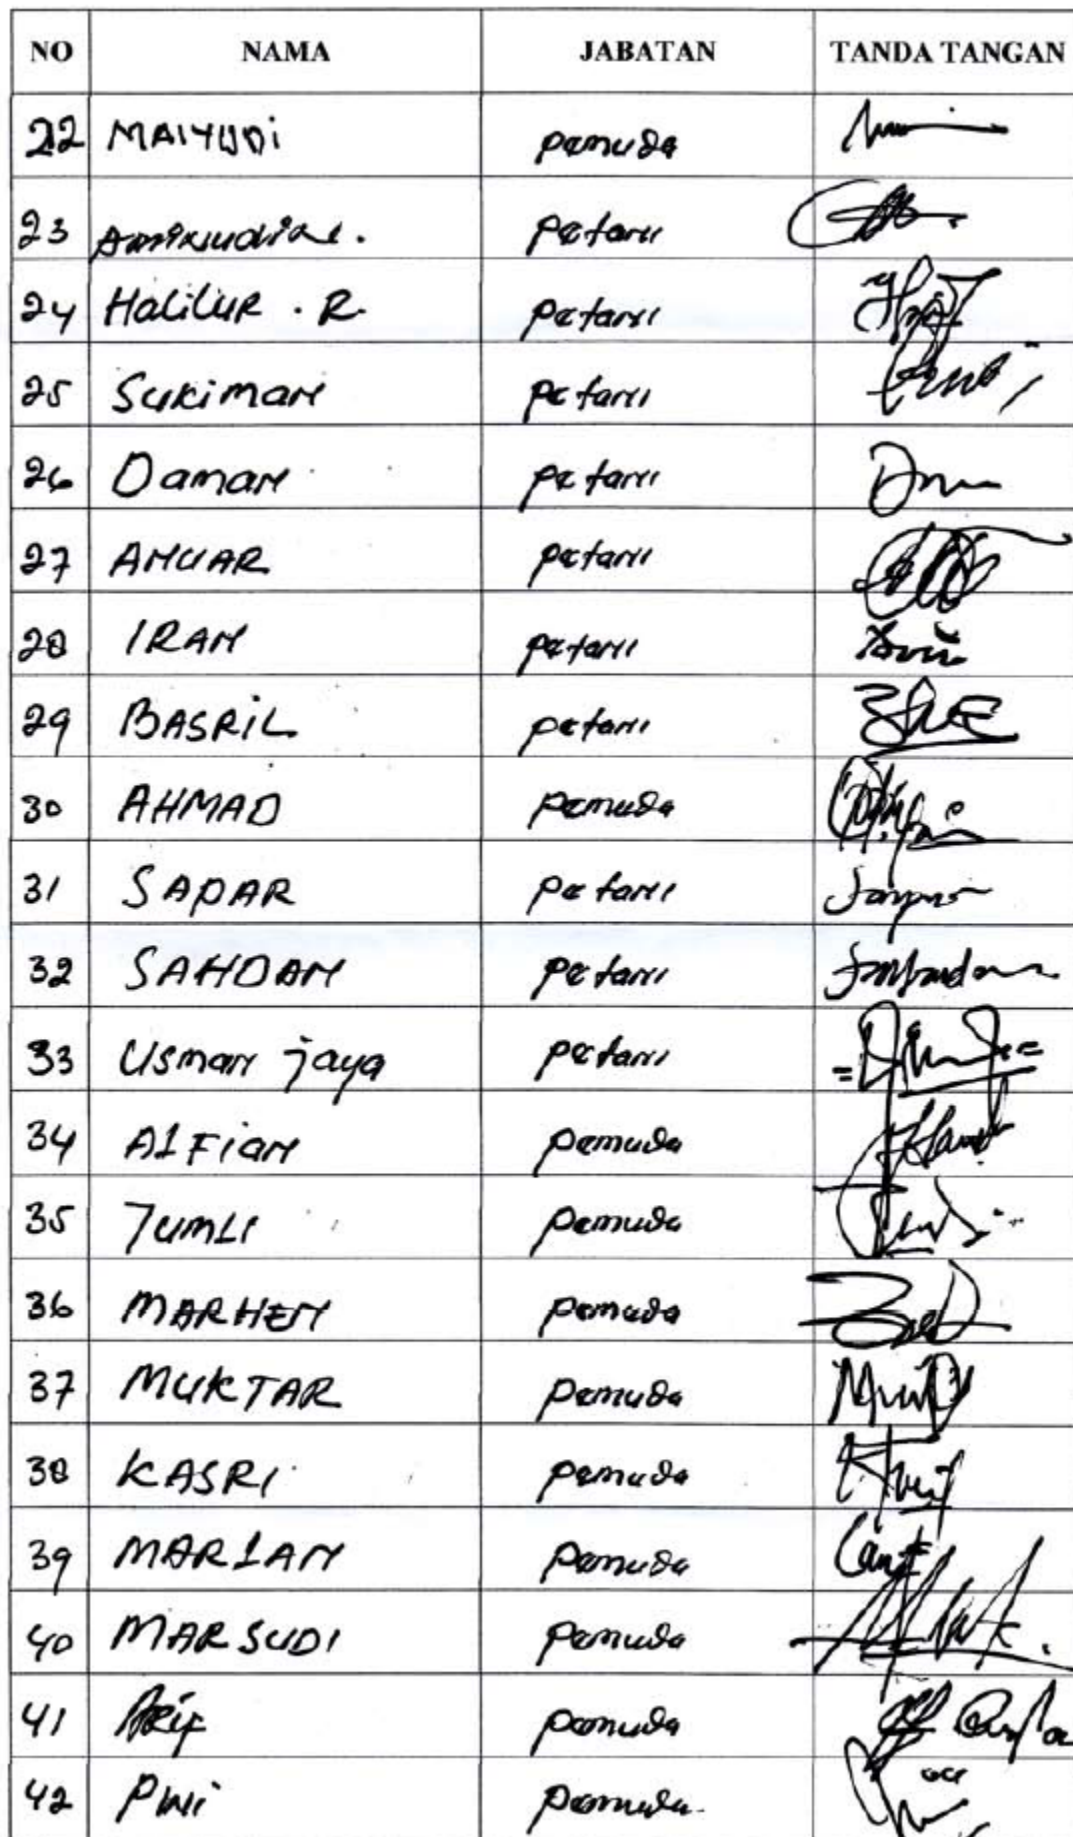 NO NAMA JABATAN TANDA TANGAN
22 MAIYUDi pemuda
23 Amirudin. petani
24 Halilur . R. petani
25 Sukiman petani
26 Daman petani
27 ANUAR petani
28 IRAN petani
29 BASRiL petani
30 AHMAD pemuda
31 SAPAR petani
32 SAHDAN petani
33 Usman jaya petani
34 AlFian pemuda
35 JUMLI pemuda
36 MARHEN pemuda
37 MUKTAR pemuda
38 KASRI pemuda
39 MARLAN pemuda
40 MARSUDI pemuda
41 Arif pemuda
42 pemuda.